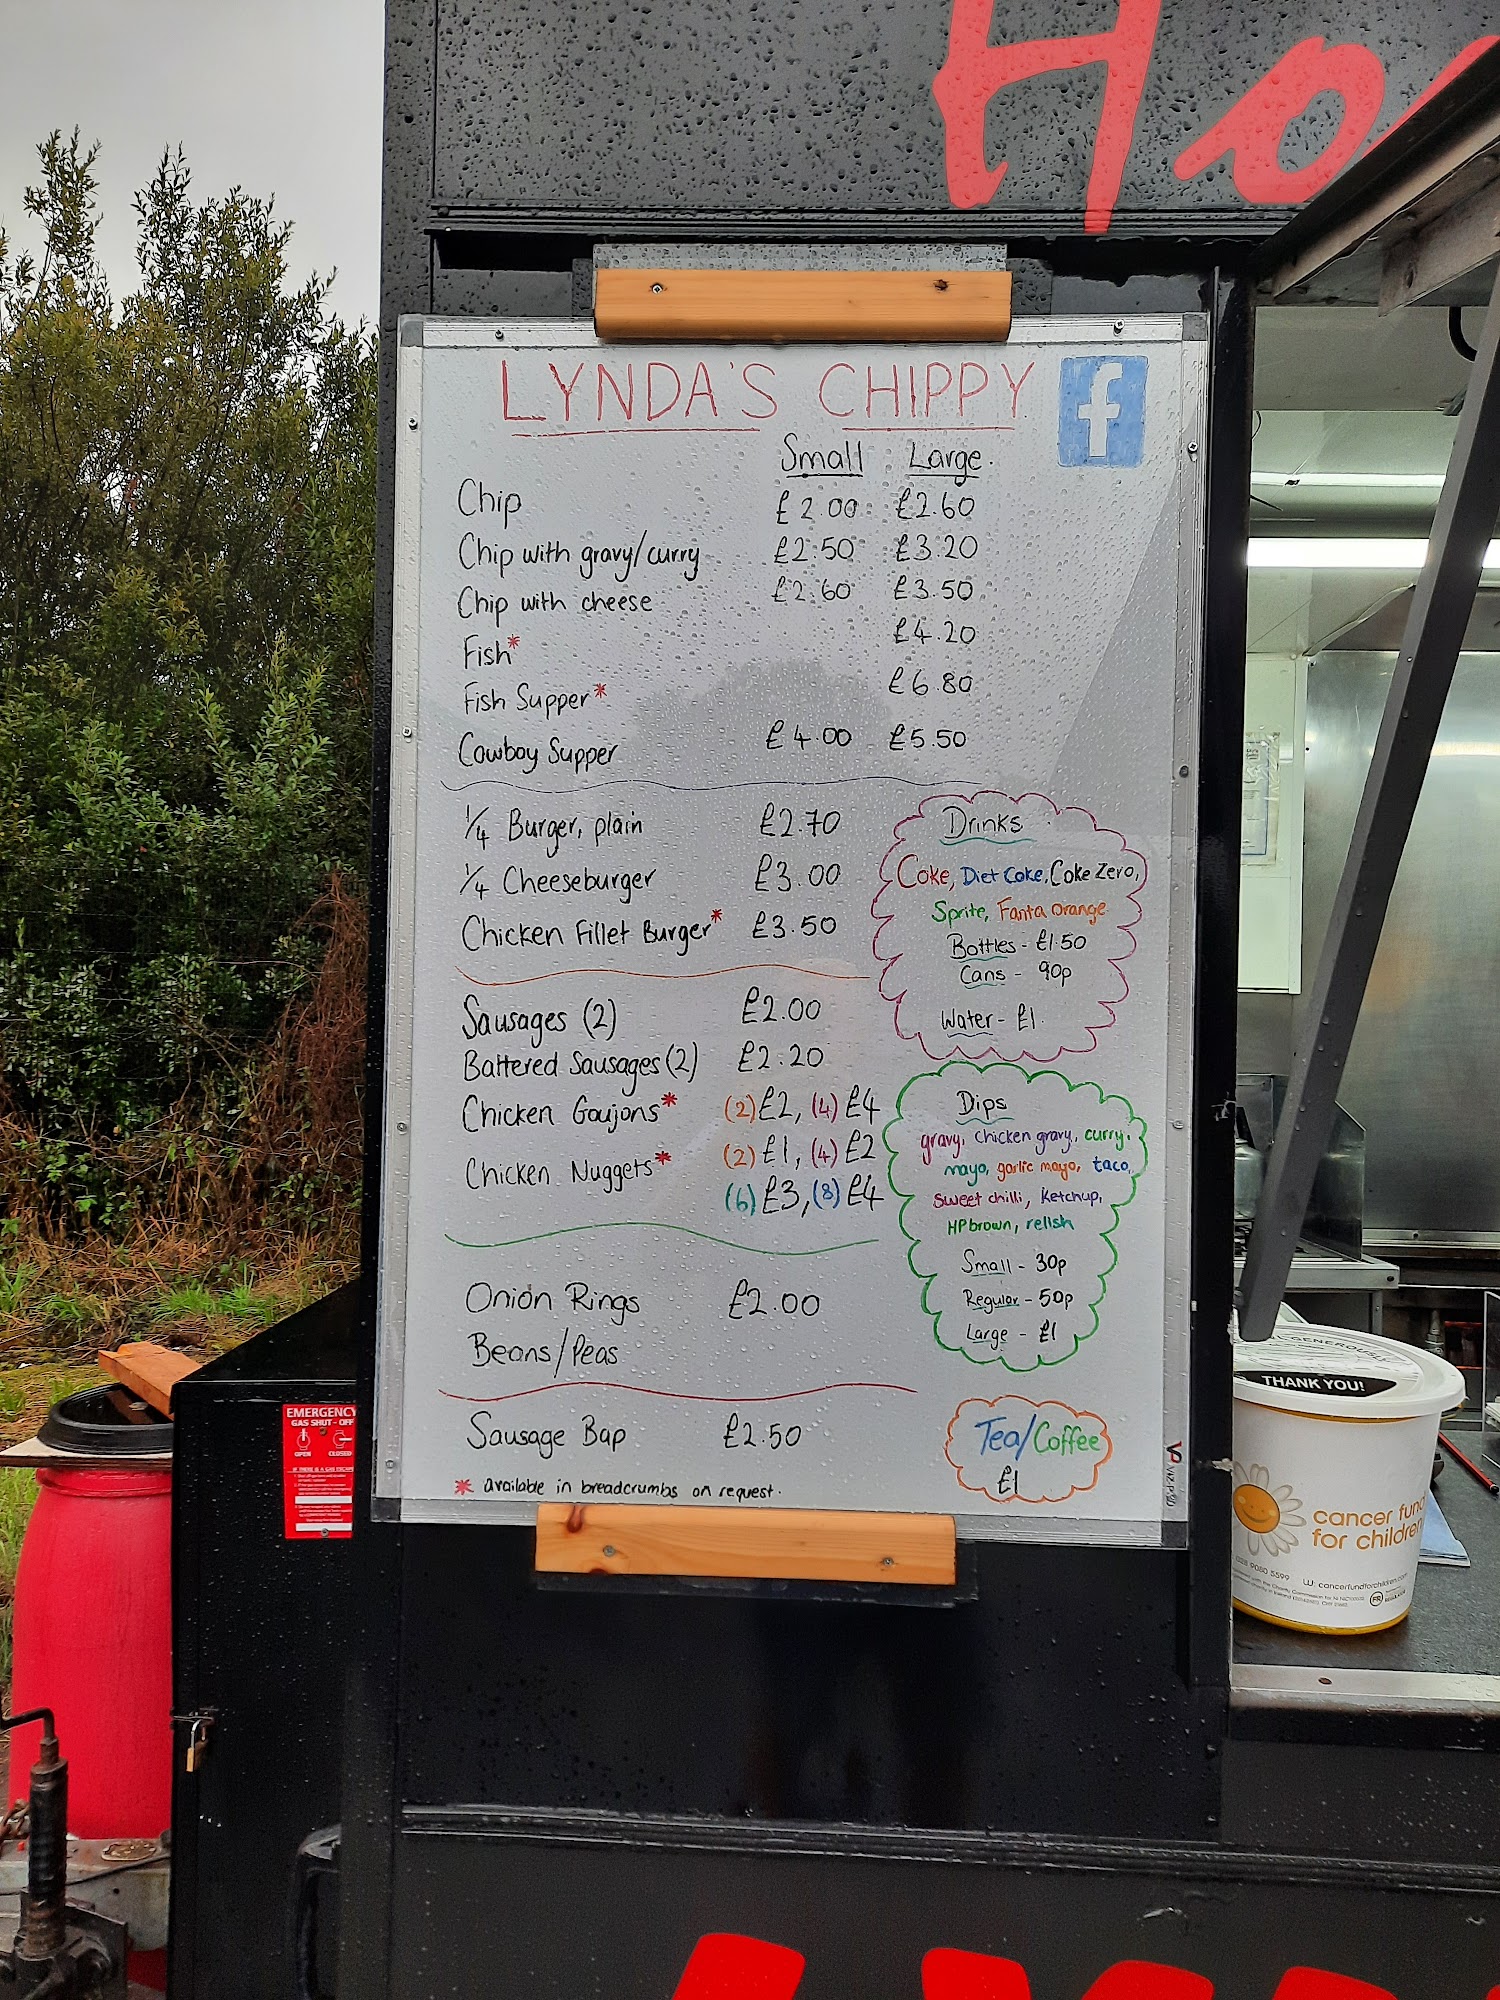 Ho
LYNDA'S CHIPPY f
Small Large
Chip £2.00 £2.60
Chip with gravy/curry £2.50 £3.20
Chip with cheese £2.60 £3.50
Fish* £4.20
Fish Supper* £6.80
Cowboy Supper £4.00 £5.50
1/4 Burger, plain £2.70
1/4 Cheeseburger £3.00
Chicken Fillet Burger* £3.50
Sausages (2) £2.00
Battered Sausages (2) £2.20
Chicken Goujons* (2) £2, (4) £4
Chicken Nuggets* (2) £1, (4) £2
(6) £3, (8) £4
Onion Rings £2.00
Beans/Peas
Sausage Bap £2.50
* available in breadcrumbs on request.
Drinks
Coke, Diet Coke, Coke Zero,
Sprite, Fanta Orange
Bottles - £1.50
Cans - 90p
Water - £1.
Dips
gravy, chicken gravy, curry,
mayo, garlic mayo, taco,
sweet chilli, ketchup,
HP brown, relish
Small - 30p
Regular - 50p
Large - £1
Tea/Coffee
£1
EMERGENCY
GAS SHUT-OFF
OPEN CLOSED
GENEROUSLY
THANK YOU!
cancer fund
for children
W: cancerfundforchildren.com